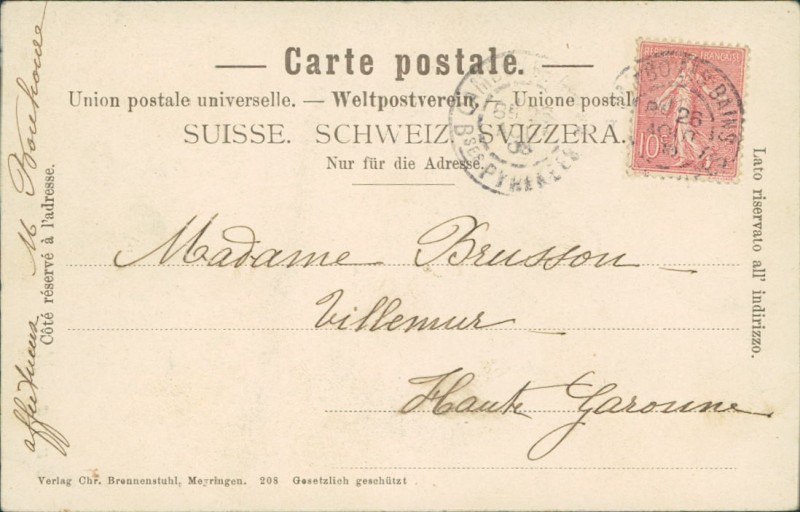 Carte postale.
Union postale universelle. — Weltpostverein. Unione postale
SUISSE. SCHWEIZ. SVIZZERA.
Nur für die Adresse.
Côté réservé à l'adresse.
Lato riservato all' indirizzo.
RÉPUBLIQUE FRANÇAISE
10
BAINS
26
BSES PYRÉNÉES
Madame Brusson
Villemur
Haute Garonne
M
Verlag Chr. Brennenstuhl, Meyringen. 208 Gesetzlich geschützt